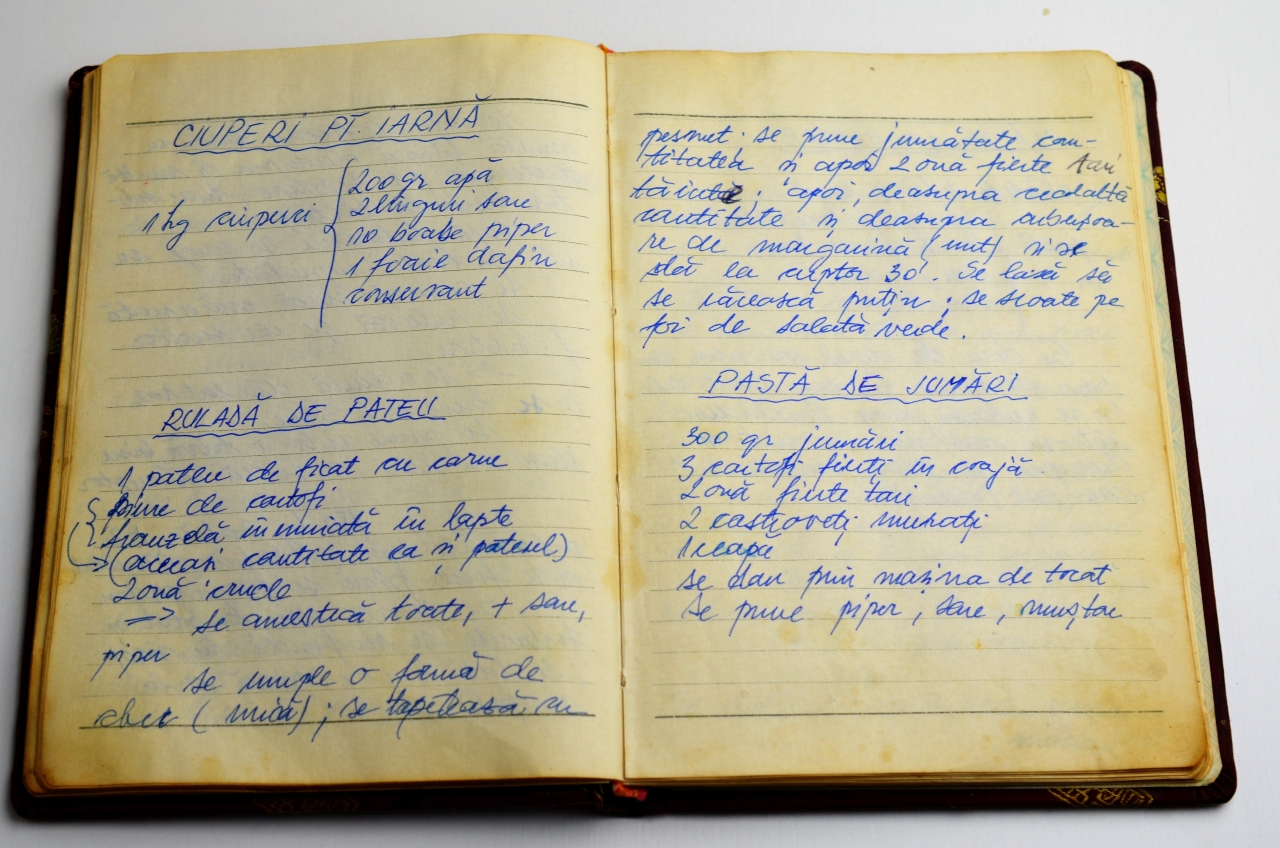 CIUPERI PT. IARNĂ
1 kg ciuperci
200 gr apă
2 linguri sare
10 boabe piper
1 foaie dafin
conservant
RULADĂ DE PATEU
1 pateu de ficat cu carne
piure de cartofi
franzelă înmuiată în lapte
(aceeași cantitate ca și pateul)
2 ouă crude
=> se amestică toate, + sare,
piper
se umple o formă de
chec (mică); se tapetează cu
pesmet; se pune jumătate can-
titatea și apoi 2 ouă fierte tari
tăiate; apoi, deasupra cealaltă
cantitate și deasupra
re de margarină (unt) și se
dă la cuptor 30'. Se lasă să
se răcească puțin; se scoate pe
foi de salată verde.
PASTĂ DE JUMĂRI
300 gr jumări
3 cartofi fierți în coajă
2 ouă fierte tari
2 castraveți murați
1 ceapă
se dau prin mașina de tocat
se pune piper, sare, muștar